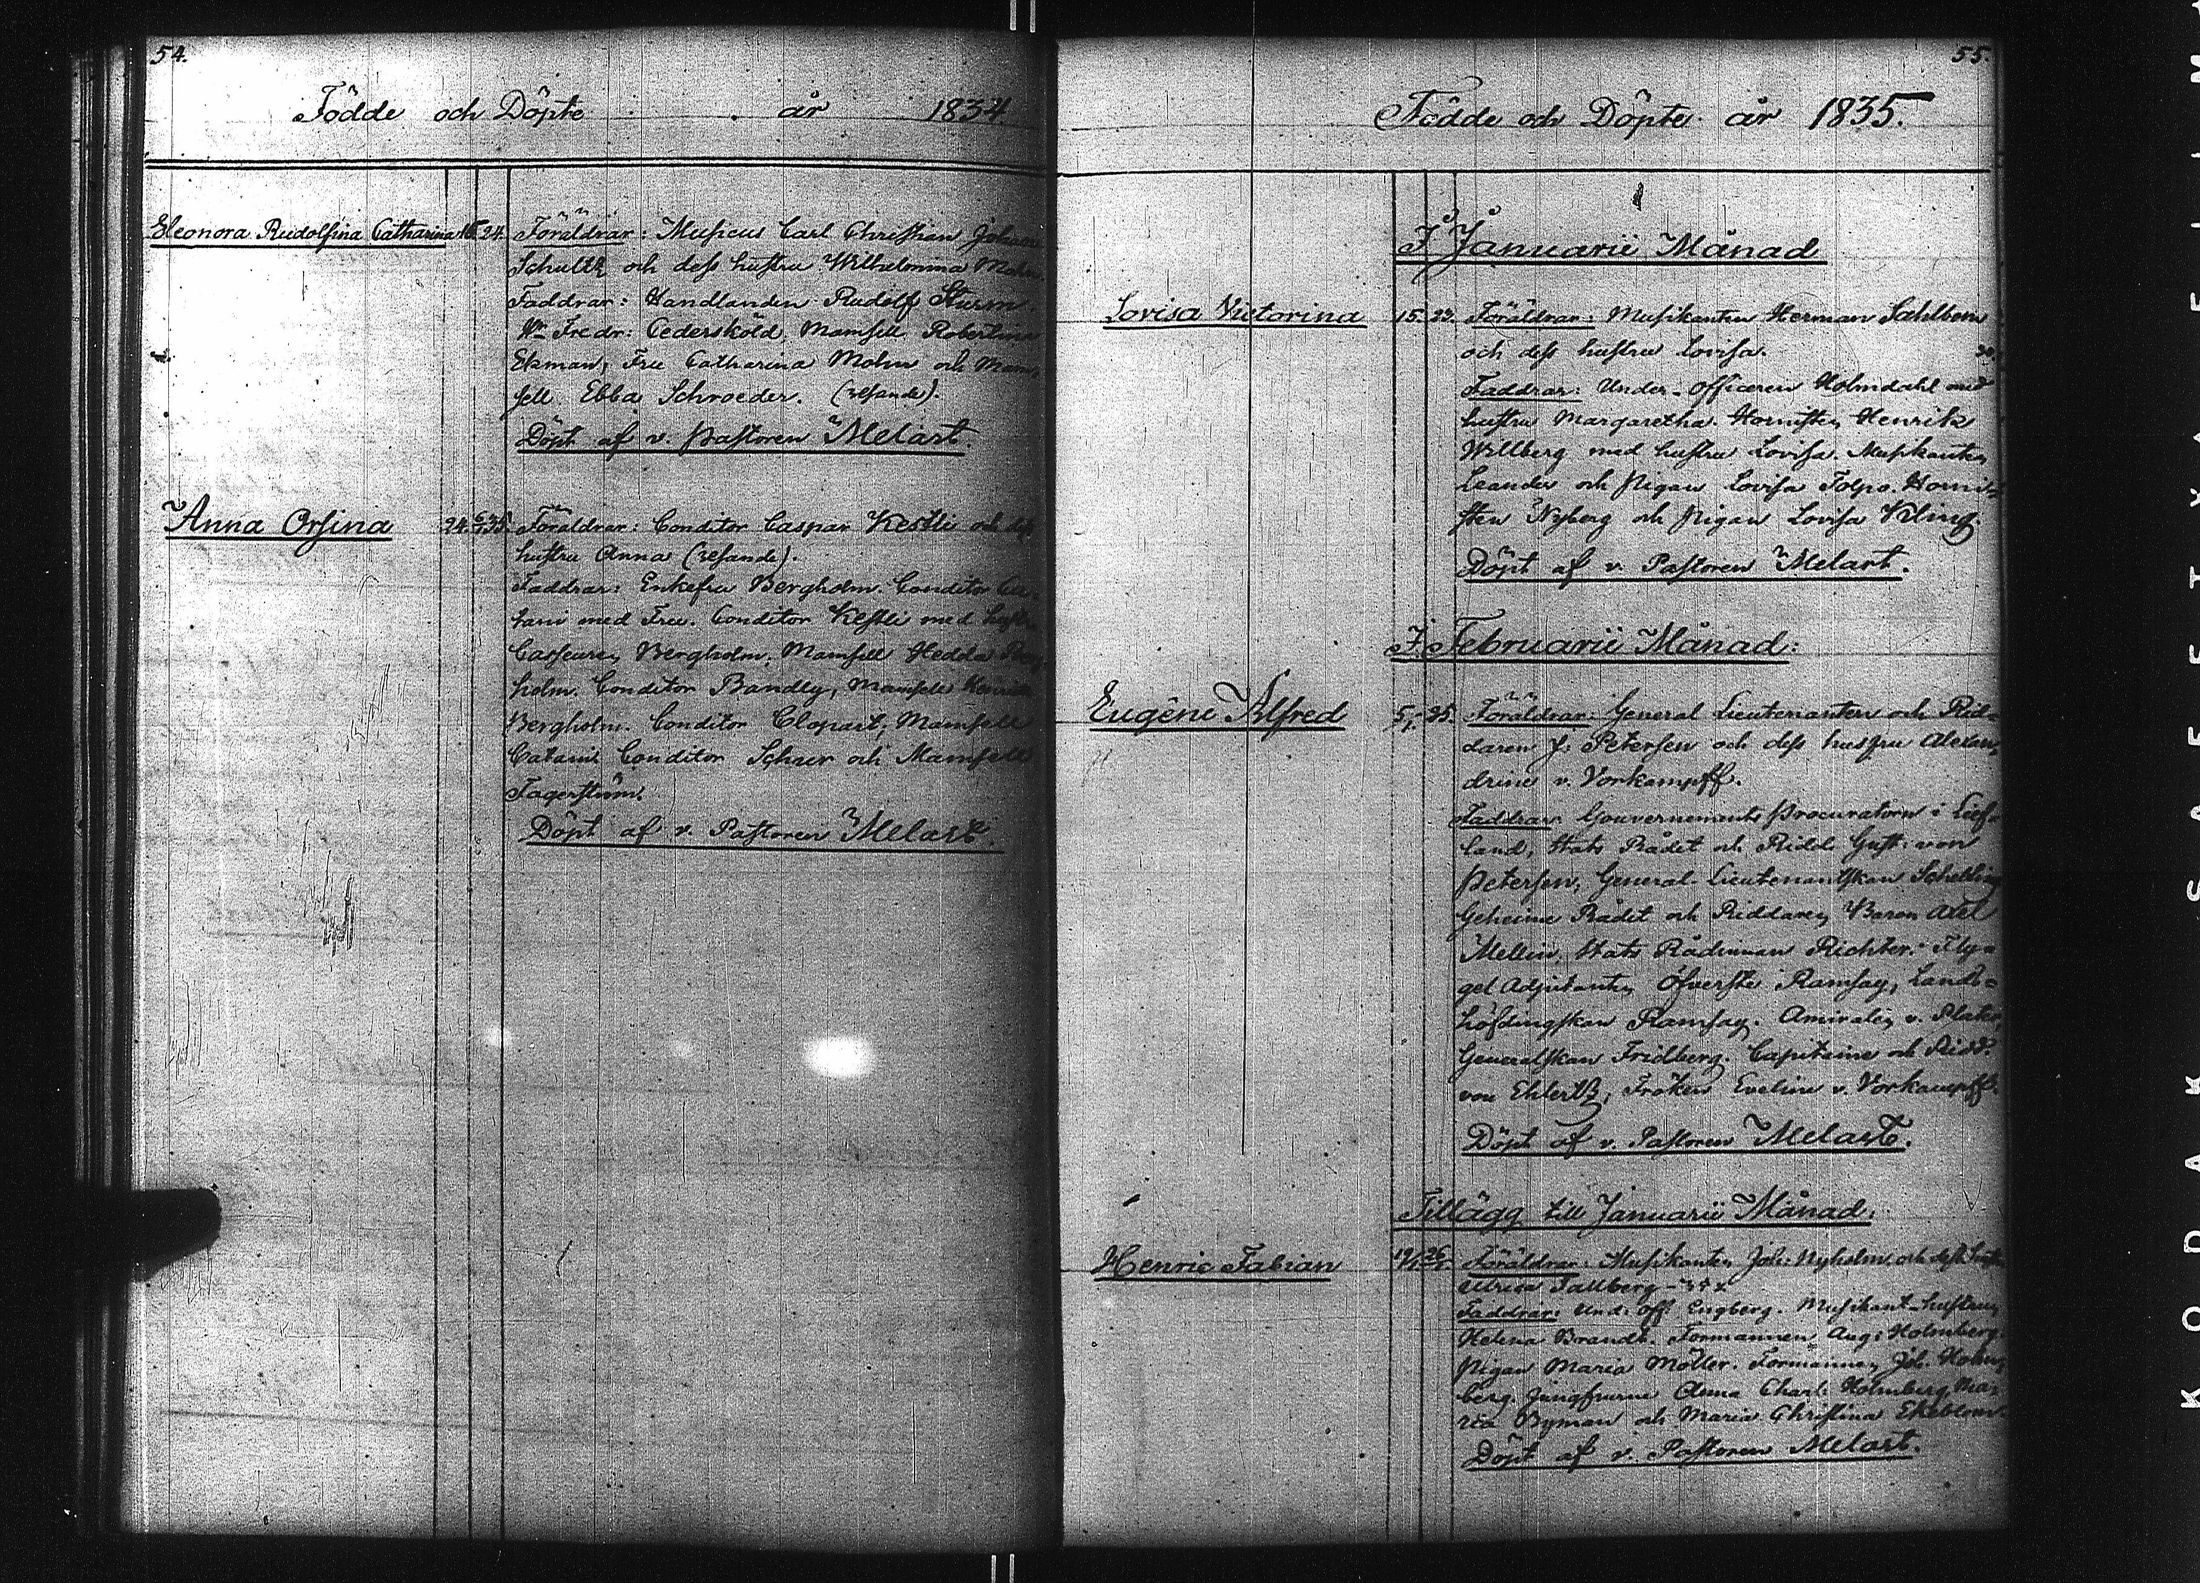 54.
Födde och Döpte år 1834
Eleonora Rudolfina Catharina 24. Föräldrar: Musicus Carl Christian
Schultz och dess hustru Wilhelmina
Faddrar: Handlanden Rudolf Sturm
Fredr: Cedersköld, Mamsell Robertina
Ekman, Fru Catharina Mohn och Mam
sell Ebba Schroeder. (resande).
Döpt af v. Pastoren Melart.
Anna Orsina 24. 35. Föräldrar: Conditor Caspar Kestli och
hustru Anna (resande).
Faddrar: Enkefru Bergholm. Conditor Ca
tani med Fru. Conditor Kestli med
Bergholm, Mamsell Hedda
holm. Conditor Bandly, Mamsell
Bergholm. Conditor Clopart, Mamsell
Catani Conditor och Mamsell
Fagerström.
Döpt af v. Pastoren Melart.
55.
Födde och Döpte år 1835.
I Januarii Månad
Lovisa Victorina 15. 23. Föräldrar: Musikanten Herman Sahlbom
och dess hustru Lovisa.
Faddrar: Under-officeren Holmdahl med
hustru Margaretha. Hornisten Henrik
Willberg med hustru Lovisa. Musikanten
Leander och Pigan Lovisa Tolpo. Horni-
sten Nyberg och Pigan Lovisa Kling.
Döpt af v. Pastoren Melart.
I Februarii Månad:
Eugène Alfred 5. 25. Föräldrar: General Lieutenanten och Rid-
daren J. Petersen och dess hustru Alexan-
drine v. Vorkampff.
Faddrar: Gouvernements Procuratorn i Lief-
land, Stats Rådet och Ridd. Gust: von
Petersen, General Lieutenantskan
Geheime Rådet och Riddaren Baron Axel
Mellin, Stats Rådinnan Richter. Fly-
gel Adjutanten Öfverste Ramsay, Lands-
höfdingskan Ramsay. Amiralen v. Platen,
Generalskan Fridberg. Capitaine och Ridd.
von Ehlertz, Fröken Eveline v. Vorkampff.
Döpt af v. Pastoren Melart.
Tillägg till Januarii Månad.
Henric Fabian 19/1 26 Föräldrar: Musikanten Joh: Nyholm och dess
Ulrica Tallberg
Faddrar: Und: off: Engberg. Musikant hustrun
Helena Brandt. Formannen Aug: Holmberg.
Pigan Maria Möller. Formannen Joh. Holm-
berg, Jungfrurne Anna Charl: Holmberg, Ma-
ria Byman och Maria Christina Ekeblom.
Döpt af v. Pastoren Melart.
KODAK SAFETY